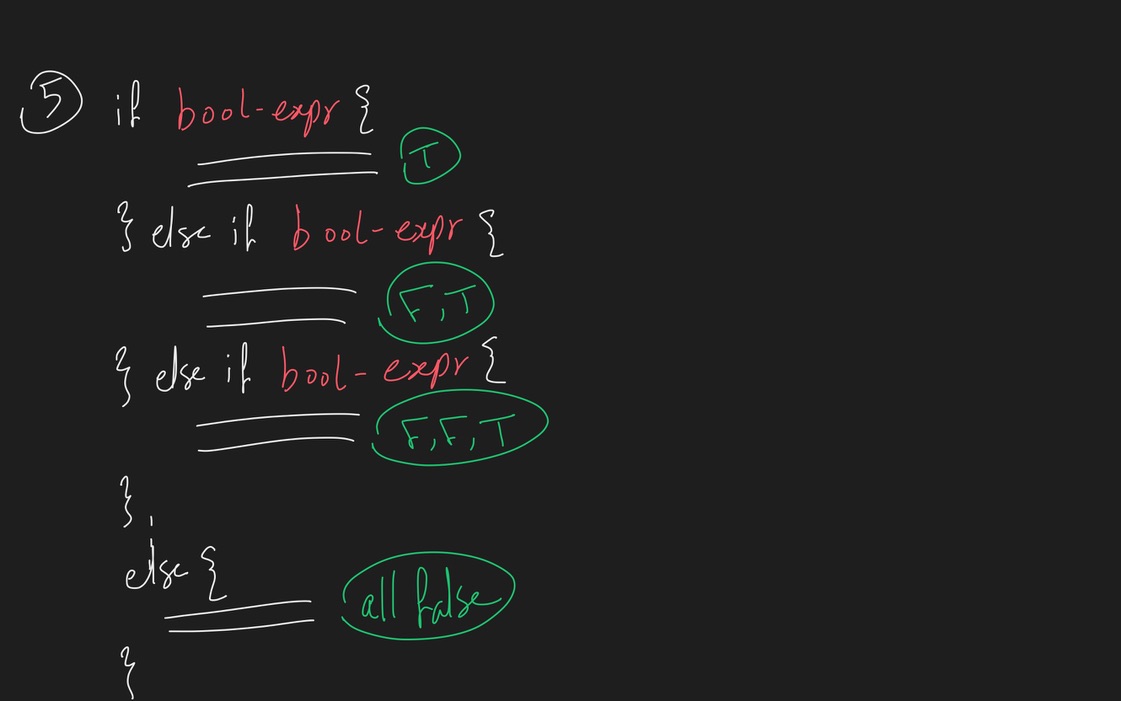 ⑤ if bool-expr {
T
} else if bool-expr {
F, T
} else if bool-expr {
F, F, T
}
else {
all false
}